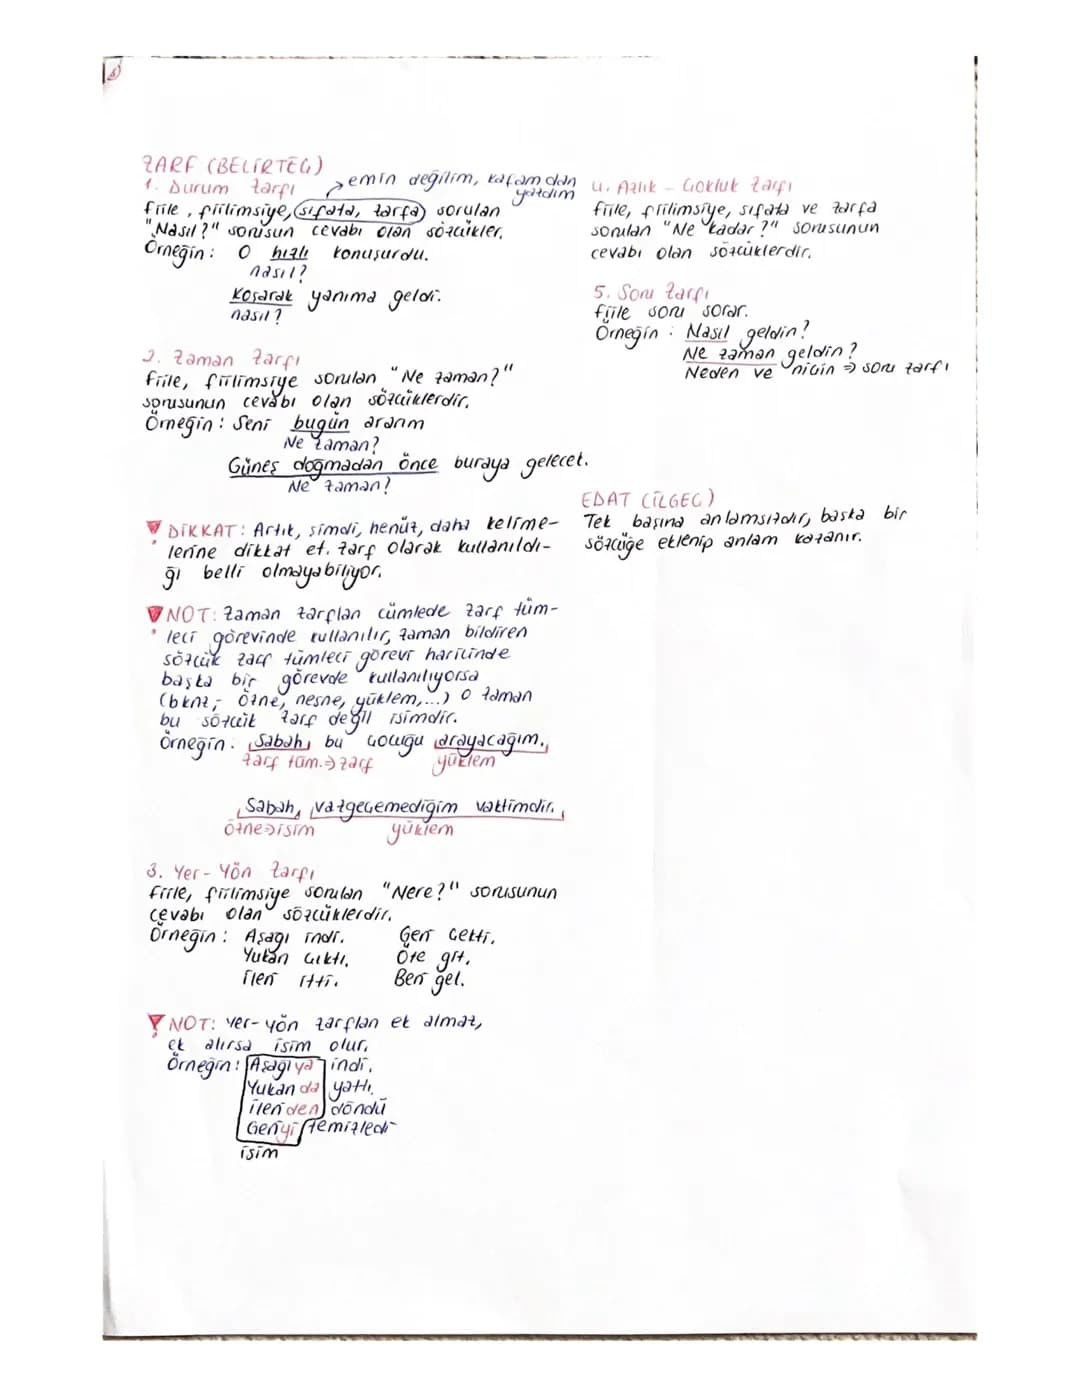 ZARF (BELİRTEÇ)
1. Durum Zarfı
emin değilim, kafamdan yazdım
fiile, fiilimsiye, sıfata, zarfa sorulan
"Nasıl?" sorusun cevabı olan sözcükler.
Örneğin: O hızlı konuşurdu.
nasıl?
Koşarak yanıma geldi.
nasıl?
2. Zaman Zarfı
fiile, fiilimsiye sorulan "Ne zaman?"
sorusunun cevabı olan sözcüklerdir.
Örneğin: Seni bugün ararım
Ne zaman?
Güneş doğmadan önce buraya gelecek.
Ne zaman?
DİKKAT: Artık, şimdi, henüz, daha kelime-
lerine dikkat et. Zarf olarak kullanıldı-
ğı belli olmayabiliyor.
NOT: Zaman zarfları cümlede zarf tüm-
leci görevinde kullanılır, zaman bildiren
sözcük zarf tümleci görevi haricinde
başka bir görevde kullanılıyorsa
(bknz; özne, nesne, yüklem,...) o zaman
bu sözcük zarf değil isimdir.
Örneğin: Sabah, bu çocuğu arayacağım.
zarf tüm.⇒zarf yüklem
Sabah, vazgeçemediğim vaktimdir.
özne⇒isim yüklem
3. Yer-Yön Zarfı
fiile, fiilimsiye sorulan "Nere?" sorusunun
cevabı olan sözcüklerdir.
Örneğin: Aşağı indi. Geri çekti.
Yukarı çıktı. Öte git.
İleri itti. Beri gel.
NOT: Yer-yön zarfları ek almaz,
ek alırsa isim olur.
Örneğin: Aşağıya indi.
Yukarıda yattı.
İleriden döndü
Geriyi temizledi
isim
4. Azlık - Çokluk Zarfı
fiile, fiilimsiye, sıfata ve zarfa
sorulan "Ne kadar?" sorusunun
cevabı olan sözcüklerdir.
5. Soru Zarfı
fiile soru sorar.
Örneğin: Nasıl geldin?
Ne zaman geldin?
Neden ve niçin ⇒ soru zarfı
EDAT (İLGEÇ)
Tek başına anlamsızdır, başka bir
sözcüğe eklenip anlam kazanır.